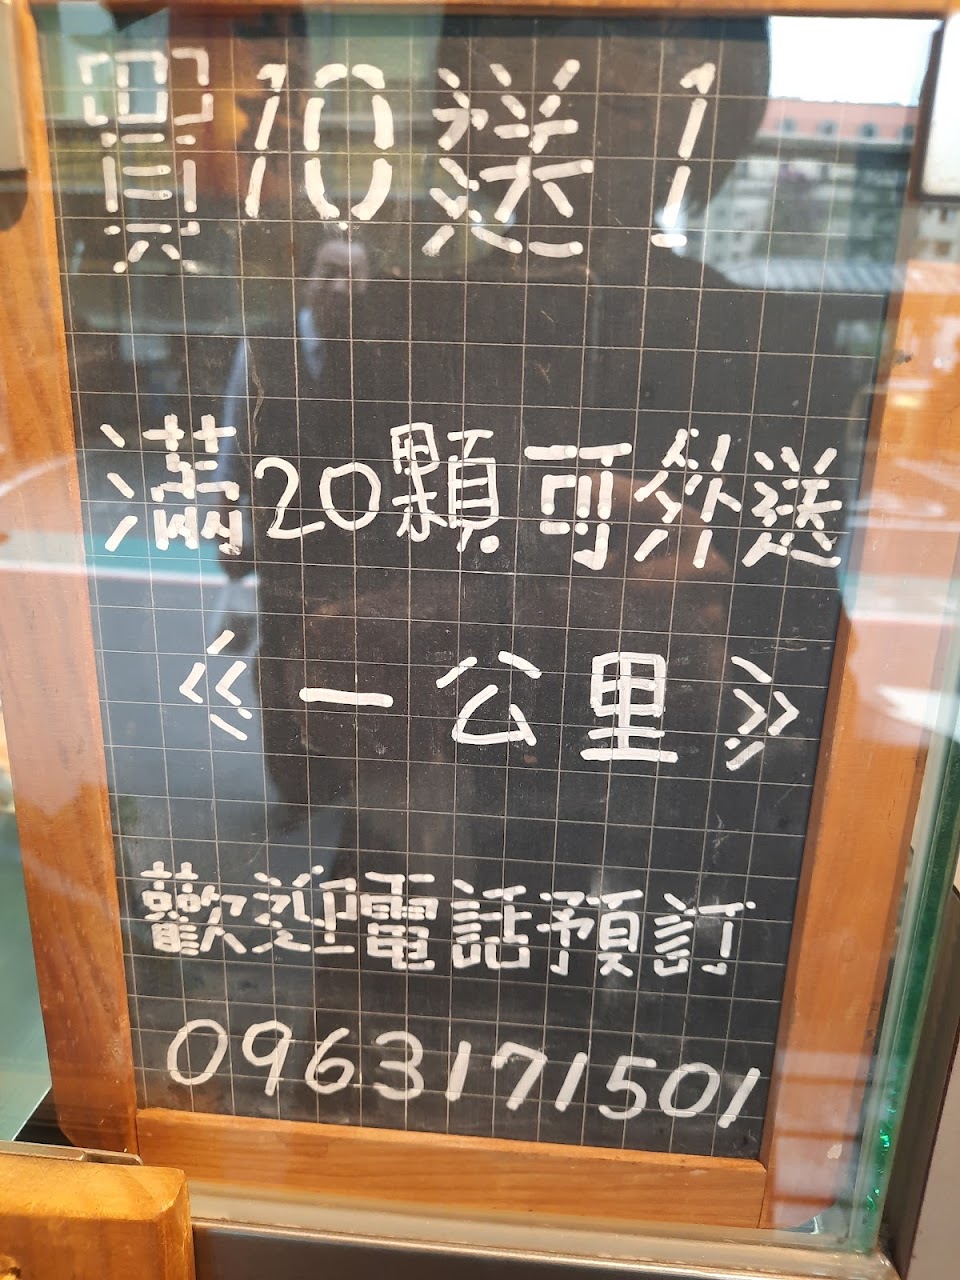 買10送1
滿20顆可外送
《一公里》
歡迎電話預訂
0963171501